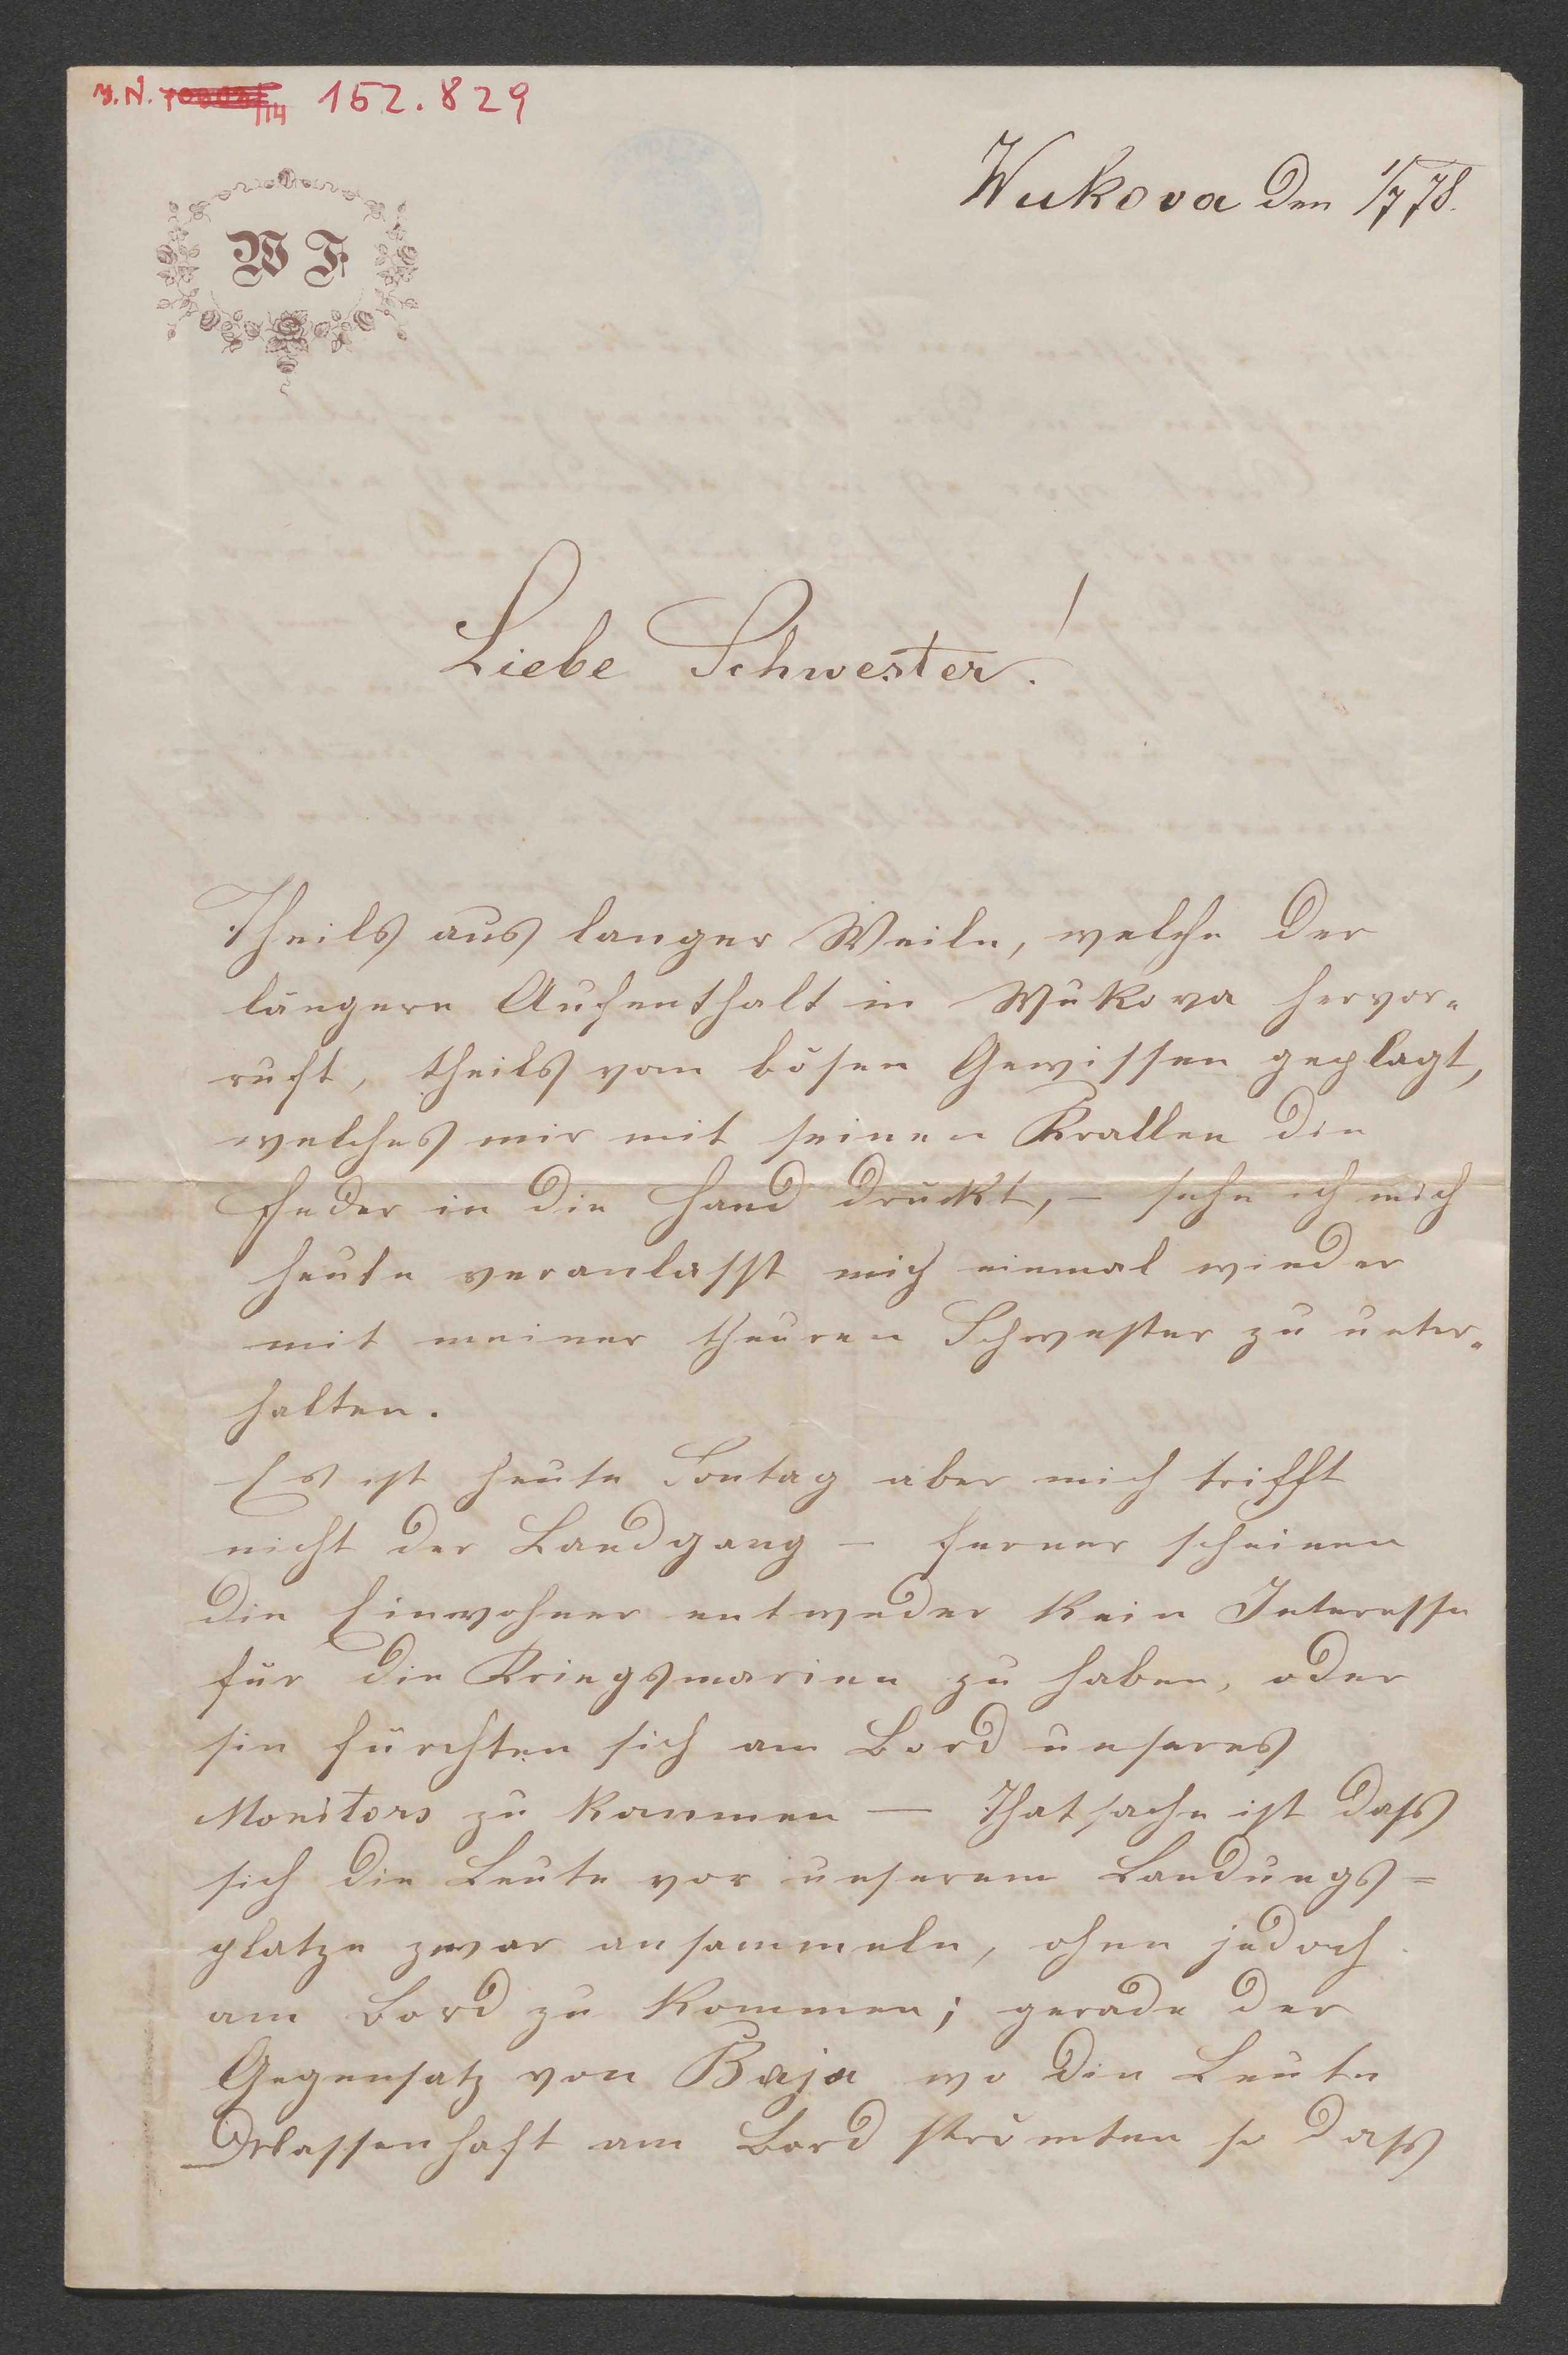 J.N. 152.829
114
W F
Wukova den 1/7 78.
Liebe Schwester!
Theils aus langer Weile, welche der
längere Aufenthalt in Wukova hervor-
ruft, theils vom bösen Gewissen geplagt,
welches mir mit seinen Krallen die
Feder in die Hand drückt, – sehe ich mich
heute veranlasst mich einmal wieder
mit meiner theuren Schwester zu unter-
halten.
Es ist heute Sontag aber mich trifft
nicht der Landgang – ferner scheinen
die Einwohner entweder kein Interesse
für die Kriegsmarine zu haben, oder
sie fürchten sich am Bord unseres
Monitors zu kommen — Thatsache ist dass
sich die Leute vor unserem Landungs-
platze zwar ansammeln, ohne jedoch
am Bord zu kommen; gerade der
Gegensatz von Baja wo die Leute
Massenhaft am Bord strömten so dass